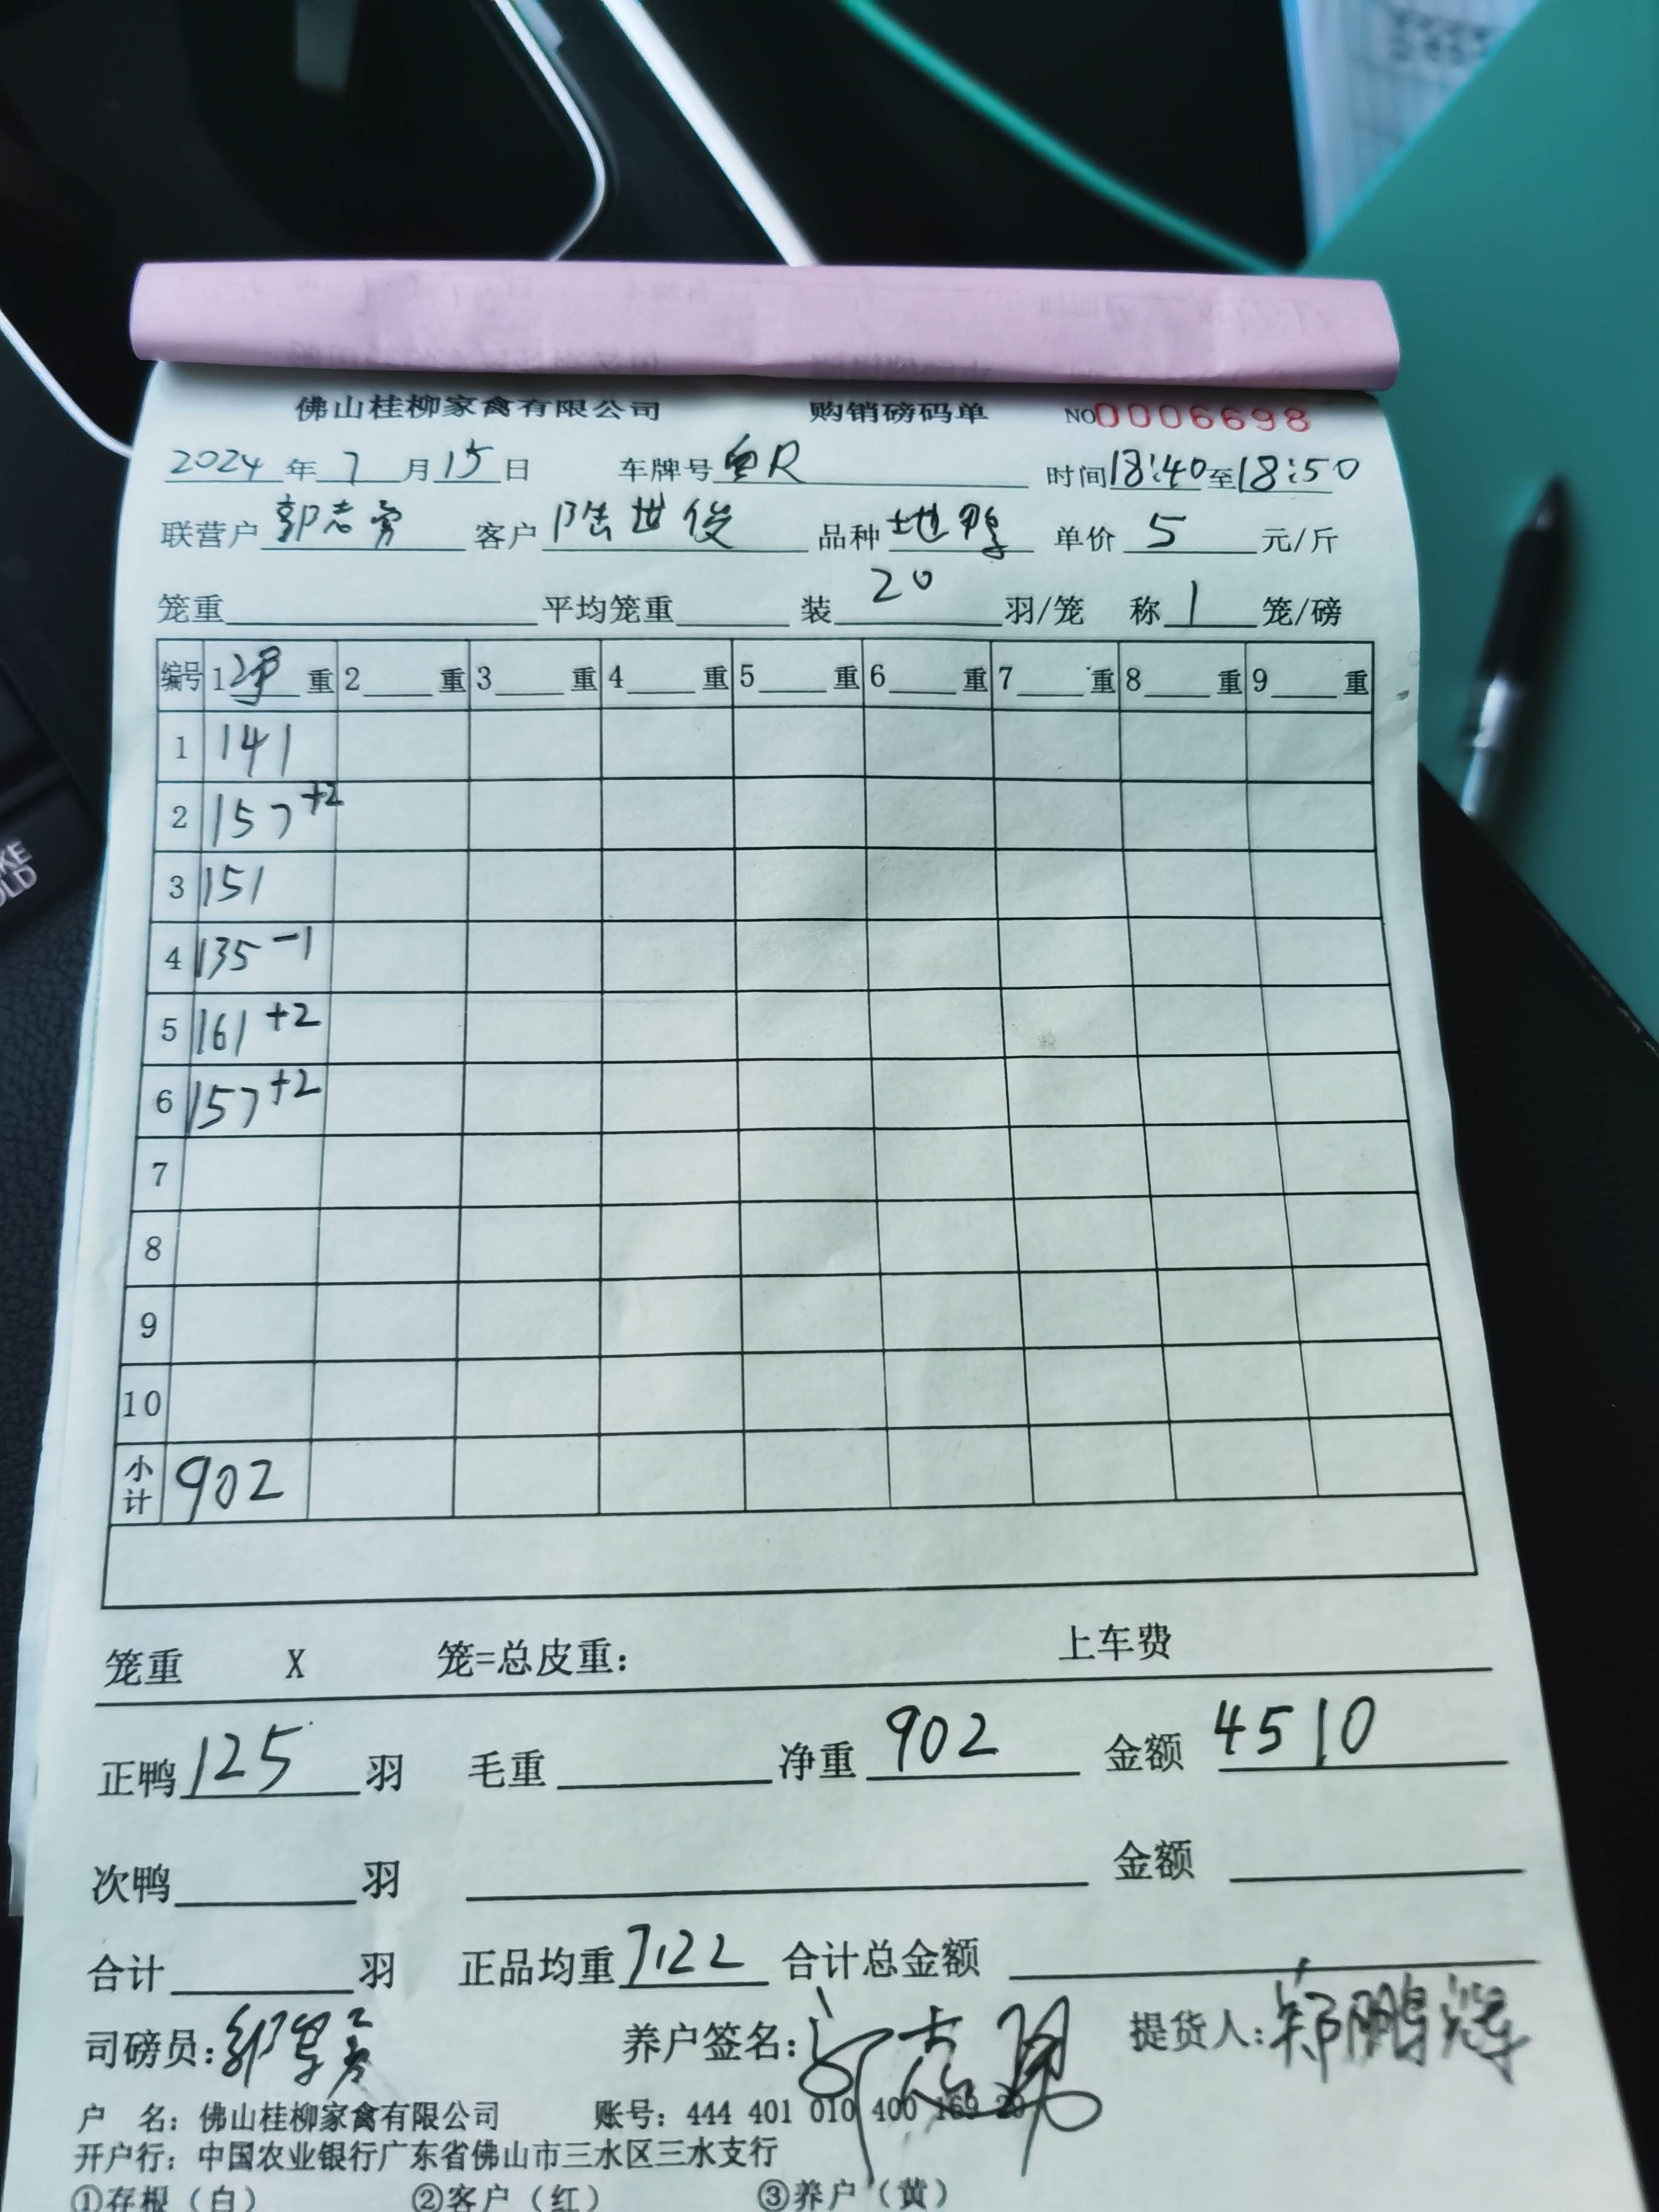 佛山桂柳家禽有限公司 购销磅码单 NO0006698
2024年7月15日 车牌号粤R 时间18:40至18:50
联营户郭志勇 客户陆世俊 品种土地鸭 单价5元/斤
笼重 平均笼重 装20羽/笼 称1笼/磅
编号 1净重 2重 3重 4重 5重 6重 7重 8重 9重
1 141
2 157+2
3 151
4 135-1
5 161+2
6 157+2
7
8
9
10
小计 902
笼重 X 笼=总皮重: 上车费
正鸭125羽 毛重 净重902 金额4510
次鸭 羽 金额
合计 羽 正品均重7.22 合计总金额
司磅员: 养户签名: 提货人:郑鹏辉
户 名: 佛山桂柳家禽有限公司 账号: 444 401 010 400 169
开户行: 中国农业银行广东省佛山市三水区三水支行
①存根(白) ②客户(红) ③养户(黄)